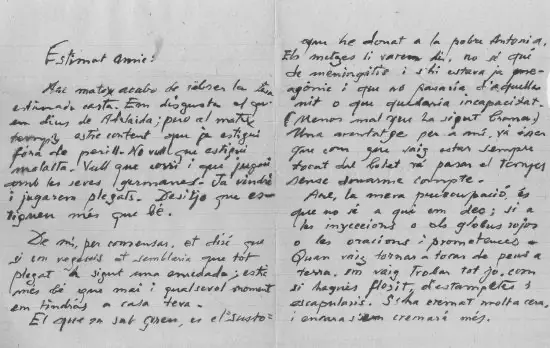 Estimat amic:
Ara mateix acabo de rebre la teva
estimada carta. Em disgusta el que
em dius de Adelaida; pero al mateix
temps estic content que ja estigui
fora de perill. No vull que estigui
malalta. Vull que corri i que jugui
amb les seves germanes. Ja vindré
i jugarem plegats. Desitjo que es-
tiguen més que bé.
De mi, per consensar, et diré que
si em veguessis et semblaria que tot
plegat ha sigut una ; estic
més bé que mai i qualsevol moment
em tindràs a casa teva.
El que sa sab greu, es el "susto"
que he donat a la pobre Antonia.
Els metges li varen dir, no sé què
de meningitis i s'hi estava ja pre-
agònic i que no pasaria d'aquella
nit o que quedaria incapacitat.
(Menos mal que ha sigut broma)
Una avantatge per a mi, va ésser
que com que vaig estar sempre
tocat del bolet va pasar el temps
sense donarme compte.
Are, la meva preocupació, és
que no sé a qui em dec; si a
les inyeccions o els globus rojos
o les oracions i prometences.
Quan vaig tornar a tocar de peus a
terra, em vaig trobar tot jo, com
si hagués florit, d'estampetes i
escapularis. S'ha cremat molta cera,
i encara s'en cremarà més.